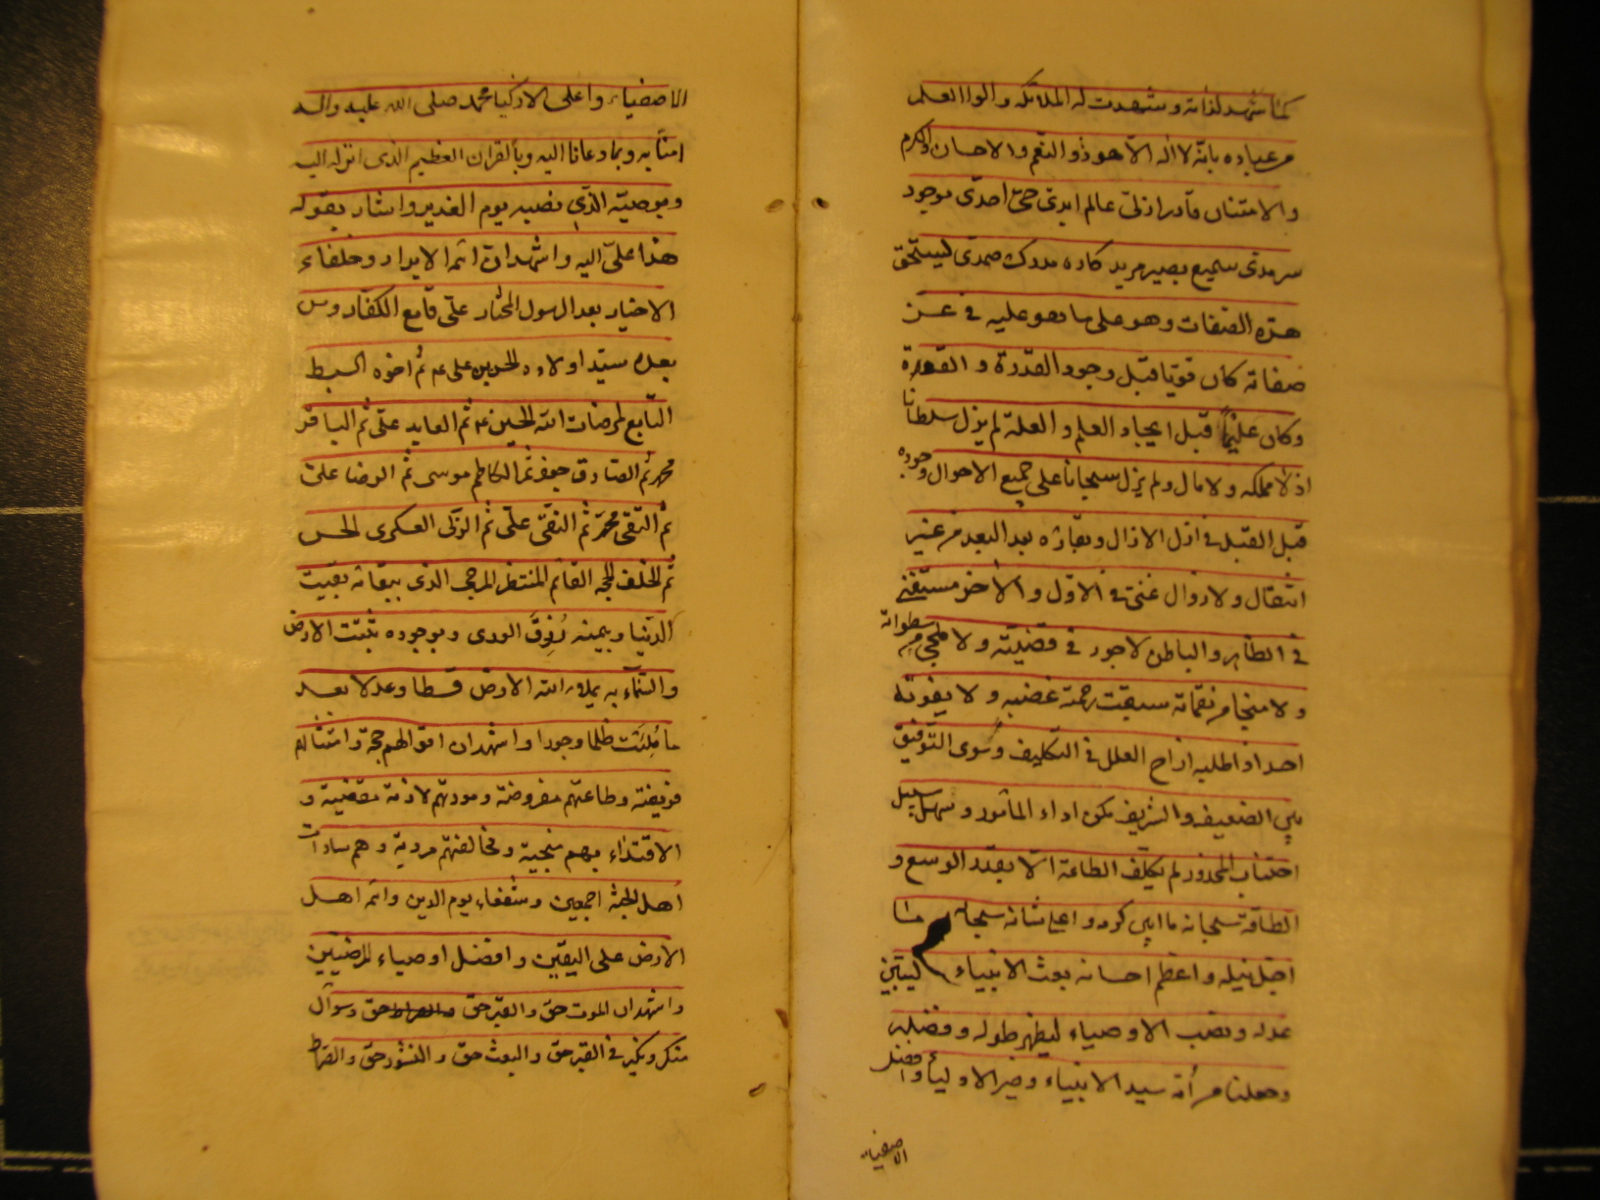 كما شهد لذاته و شهدت له الملائكة والوا العلم
من عباده بانه لا اله الا هو ذو النعم والاحسان والكرم
والامتنان قادر ازلى عالم ابدى حى احدى موجود
سرمدى سميع بصير مريد كاره مدرك صمدى ليستحق
هذه الصفات وهو على ما هو عليه فى عز
صفاته كان قويا قبل وجود القدرة و القوة
وكان عليما قبل ايجاد العلم و العلة لم يزل سلطانا
اذ لا مملكه ولا مال ولم يزل سبحانا على جميع الاحوال وجوده
قبل القبل فى ازل الازال وبقاؤه بعد البعد من غير
انتقال ولا زوال غنى فى الاول و الاخر مستغنى
فى الظاهر والباطن لا جور فى قضيته ولا ملجى من سطواته
ولا منجا من نقماته سبقت رحمته غضبه ولا يفوته
احد اذ اطلبه ازاح العلل فى التكليف وسوى التوفيق
بين الضعيف والشريف مكن اداء المأمور وسهل سبيل
اجتناب المحذور لم يكلف الطاعة الا بقدر الوسع و
الطاقة سبحانه ما ابين كرمه واعلى شانه سبحانه ما
اجل نيله واعظم احسانه بعث الانبياء ليبين
عدله ونصب الاوصياء ليظهر طوله وفضله
وجعلنا من امة سيد الانبياء وخير الاولياء وافضل
الاصفياء
الاصفياء واعلى الازكيا محمد صلى الله عليه واله
امنا به وبما دعانا اليه وبالقران العظيم الذى انزله اليه
وبوصيه الذى نصبه يوم الغدير واشار بقوله
هذا على اليه واشهد ان ائمة الابرار وخلفاء
الاخيار بعد الرسول المختار على قامع الكفار ومن
بعده سيد اولاده الحسن بن على ثم اخوه السبط
التابع لمرضات الله الحسين ثم العابد على ثم الباقر
محمد ثم الصادق جعفر ثم الكاظم موسى ثم الرضا على
ثم التقى محمد ثم النقى على ثم الزكى العسكرى الحسن
ثم الخلف الحجه القائم المنتظر المرجى الذى ببقائه بقيت
الدنيا وبيمنه رزق الورى وبوجوده ثبتت الارض
والسماء به يملاء الله الارض قسطا وعدلا بعد
ما ملئت ظلما وجورا واشهد ان اقوالهم حجة وامتثالهم
فريضة وطاعتهم مفروضة ومودتهم لازمة مقضية و
الاقتداء بهم منجية ومخالفتهم مردية وهم سادات
اهل الجنة اجمعين وشفعاء يوم الدين وائمة اهل
الارض على اليقين وافضل اوصياء المرضيين
واشهد ان الموت حق والقبر حق والصراط حق وسوال
منكر ونكير فى القبر حق والبعث حق والنشور حق والصراط